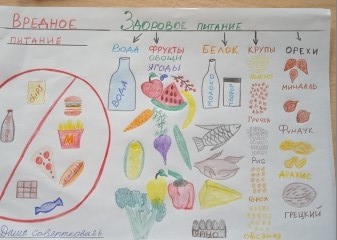 Вредное
питание
Здоровое питание
Вода
Фрукты
овощи
ягоды
Белок
Крупы
Орехи
Вода
Молоко
Творог
Гречка
Рис
Овсянка
Яйцо
Миндаль
Фундук
Арахис
Грецкий